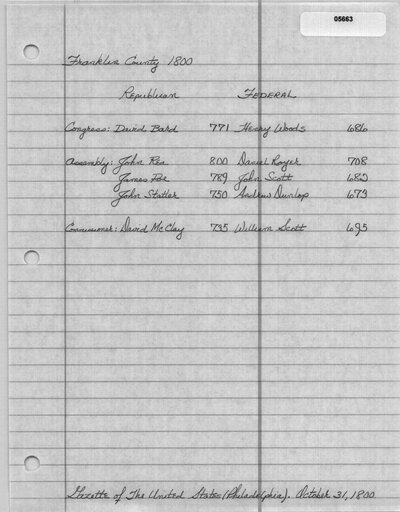 05663
Franklin County 1800
Republican FEDERAL
Congress: David Bard 771 Henry Woods 686
Assembly: John Rea 800 Daniel Royer 708
James Poe 789 John Scott 682
John Statler 750 Andrew Dunlop 673
Commissioner: David McClay 735 William Scott 695
Gazette of The United States (Philadelphia). October 31, 1800